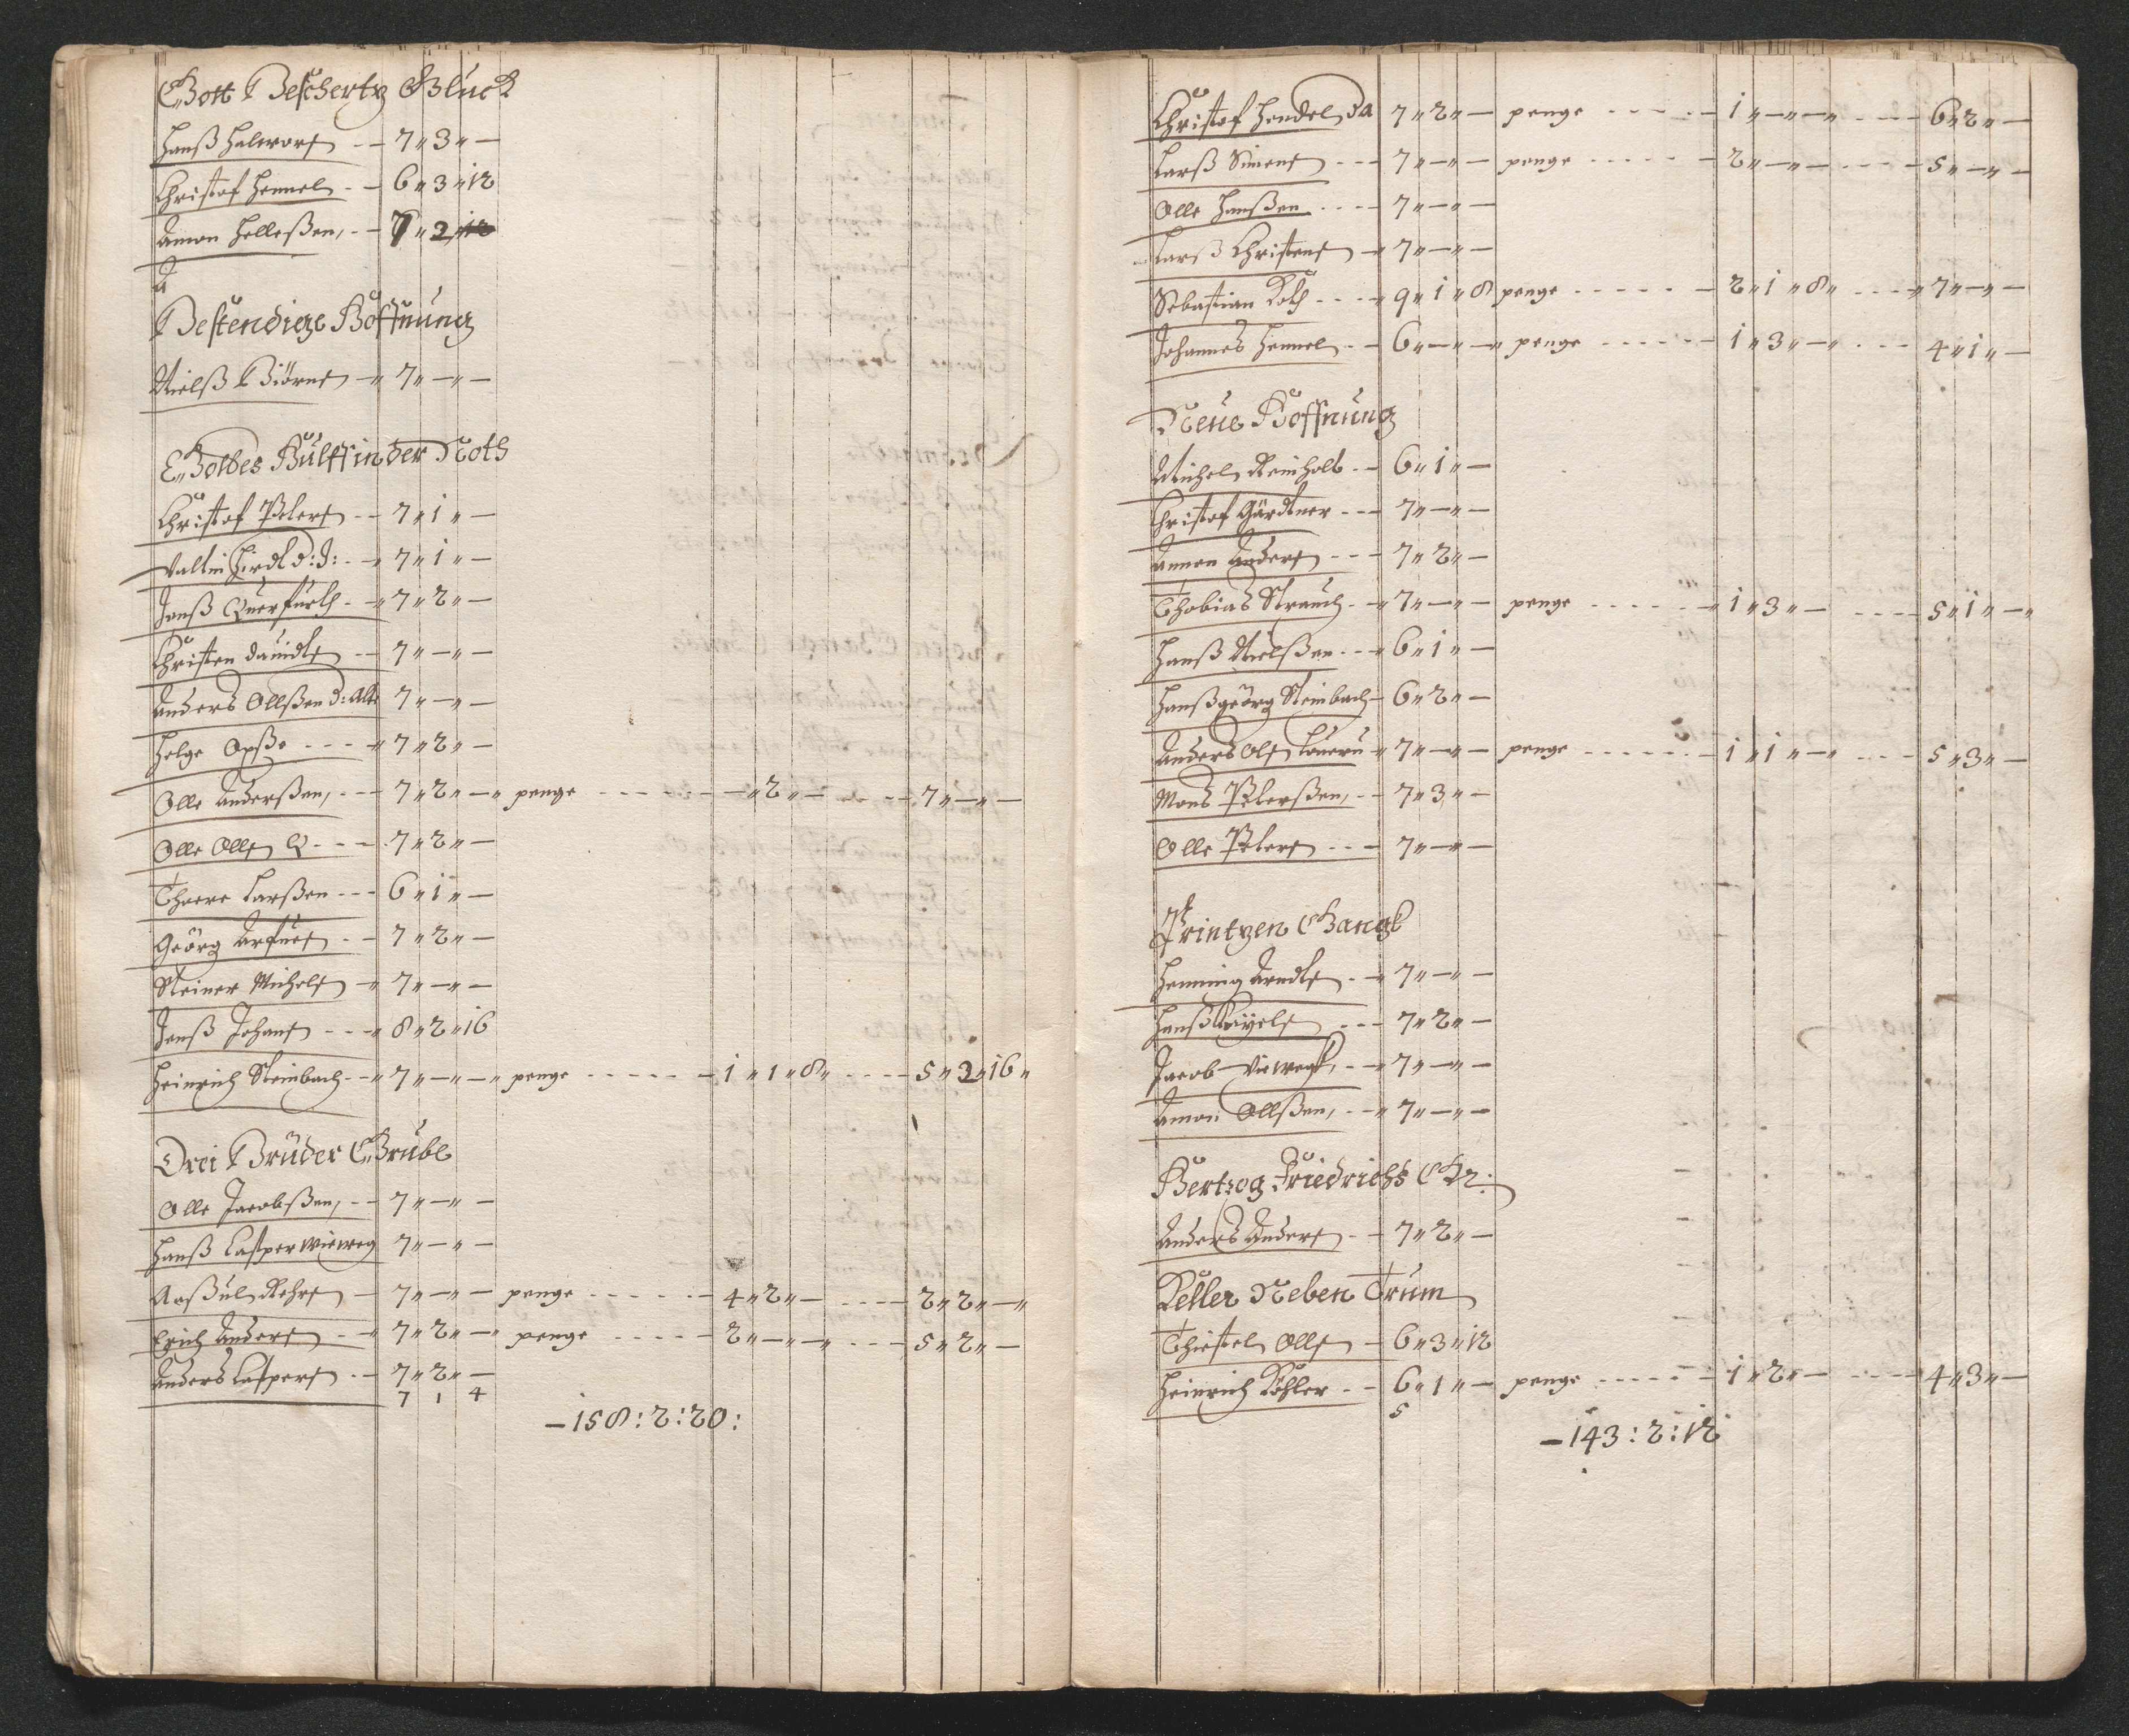 Gott Beschertz Glück
Hanß Halvors - - 7 " 3 " —
Christof Hennel - - 6 " 3 " 12
Amon Helleßen, - - 7 " 2
Bestendige Hoffnung
Nielß Biörns - " 7 " — " —
Gottes Hülff in der Noth
Christof Peters - - 7 " 1 " —
Valtin Hirdt d: J: - - " 7 " 1 " —
Jenß Querfurth - - " 7 " 2 " —
Christen Davidts - - 7 " — " —
Anders Ollßen d: Alte 7 " — " —
Helge Opße - - - - " 7 " 2 " —
Olle Anderßen, - - - 7 " 2 " — " penge - - - - - - — " 2 " — - - - - 7 " — " —
Olle Olls Q - - - 7 " 2 " —
Thorre Larßen - - - 6 " 1 " —
Georg Arfurt - - - 7 " 2 " —
Steiner Michels - " 7 " — " —
Jenß Johans - - - " 8 " 2 " 16
Heinrich Steinbach - - " 7 " — " — " penge - - - - - - 1 " 1 " 8 " - - - - 5 " 3 " 16 "
Drei Brüder Grube
Olle Jacobßen, - - 7 " — " —
Hanß Casper Vieweg 7 " — " —
Aaßul Rehrs - 7 " — " — penge - - - - - - 4 " 2 " — - - - - 2 " 2 " — "
Erich Anders - - " 7 " 2 " — " penge - - - - - 2 " — " — " - - - 5 " 2 " —
Anders Caspers - - 7 " 2 " —
7 1 4
— 158 : 2 : 20 :
Christof Hendel dA 7 " 2 " — penge - - - - - 1 " — " — " - - - - 6 " 2 " —
Larß Simens - - - 7 " — " — penge - - - - - - 2 " — " — - - - - 5 " — " —
Olle Hanßen - - - - 7 " — " —
Larß Christens - " 7 " — " —
Sebastian Koch - - - " 9 " 1 " 8 penge - - - - - - 2 " 1 " 8 " - - - " 7 " — " —
Johannes Hennel - - 6 " — " — " penge - - - - - - 1 " 3 " — " - - - 4 " 1 " —
Neue Hoffnung
Michel Reinholt - - 6 " 1 " —
Christof Gärdtner - - - 7 " — " —
Ammon Anders - - - 7 " 2 " —
Thobias Strauch - - " 7 " — " — penge - - - - - " 1 " 3 " — - - - - 5 " 1 " — "
Hanß Nielßen - - - " 6 " 1 " —
Hanß georg Steinbach - 6 " 2 " —
Anders Ols " 7 " — " — penge - - - - - - 1 " 1 " — " - - - 5 " 3 " —
Mons Peterßen, - - 7 " 3 " —
Olle Peters - - - 7 " — " —
Printzen Gang
Henning Arndts - - " 7 " — " —
Hanß - - - 7 " 2 " —
Jacob Vieweg, - - " 7 " — " —
Amon Ollßen, - - - " 7 " — " —
Hertzog Friedrichs
Anders Anders - - 7 " 2 " —
Keller Neben Trum
Thistel Olls - 6 " 3 " 12
Heinrich Köhler - - 6 " 1 " — penge - - - - - - 1 " 2 " — - - - - 4 " 3 " —
5
— 143 : 2 : 12